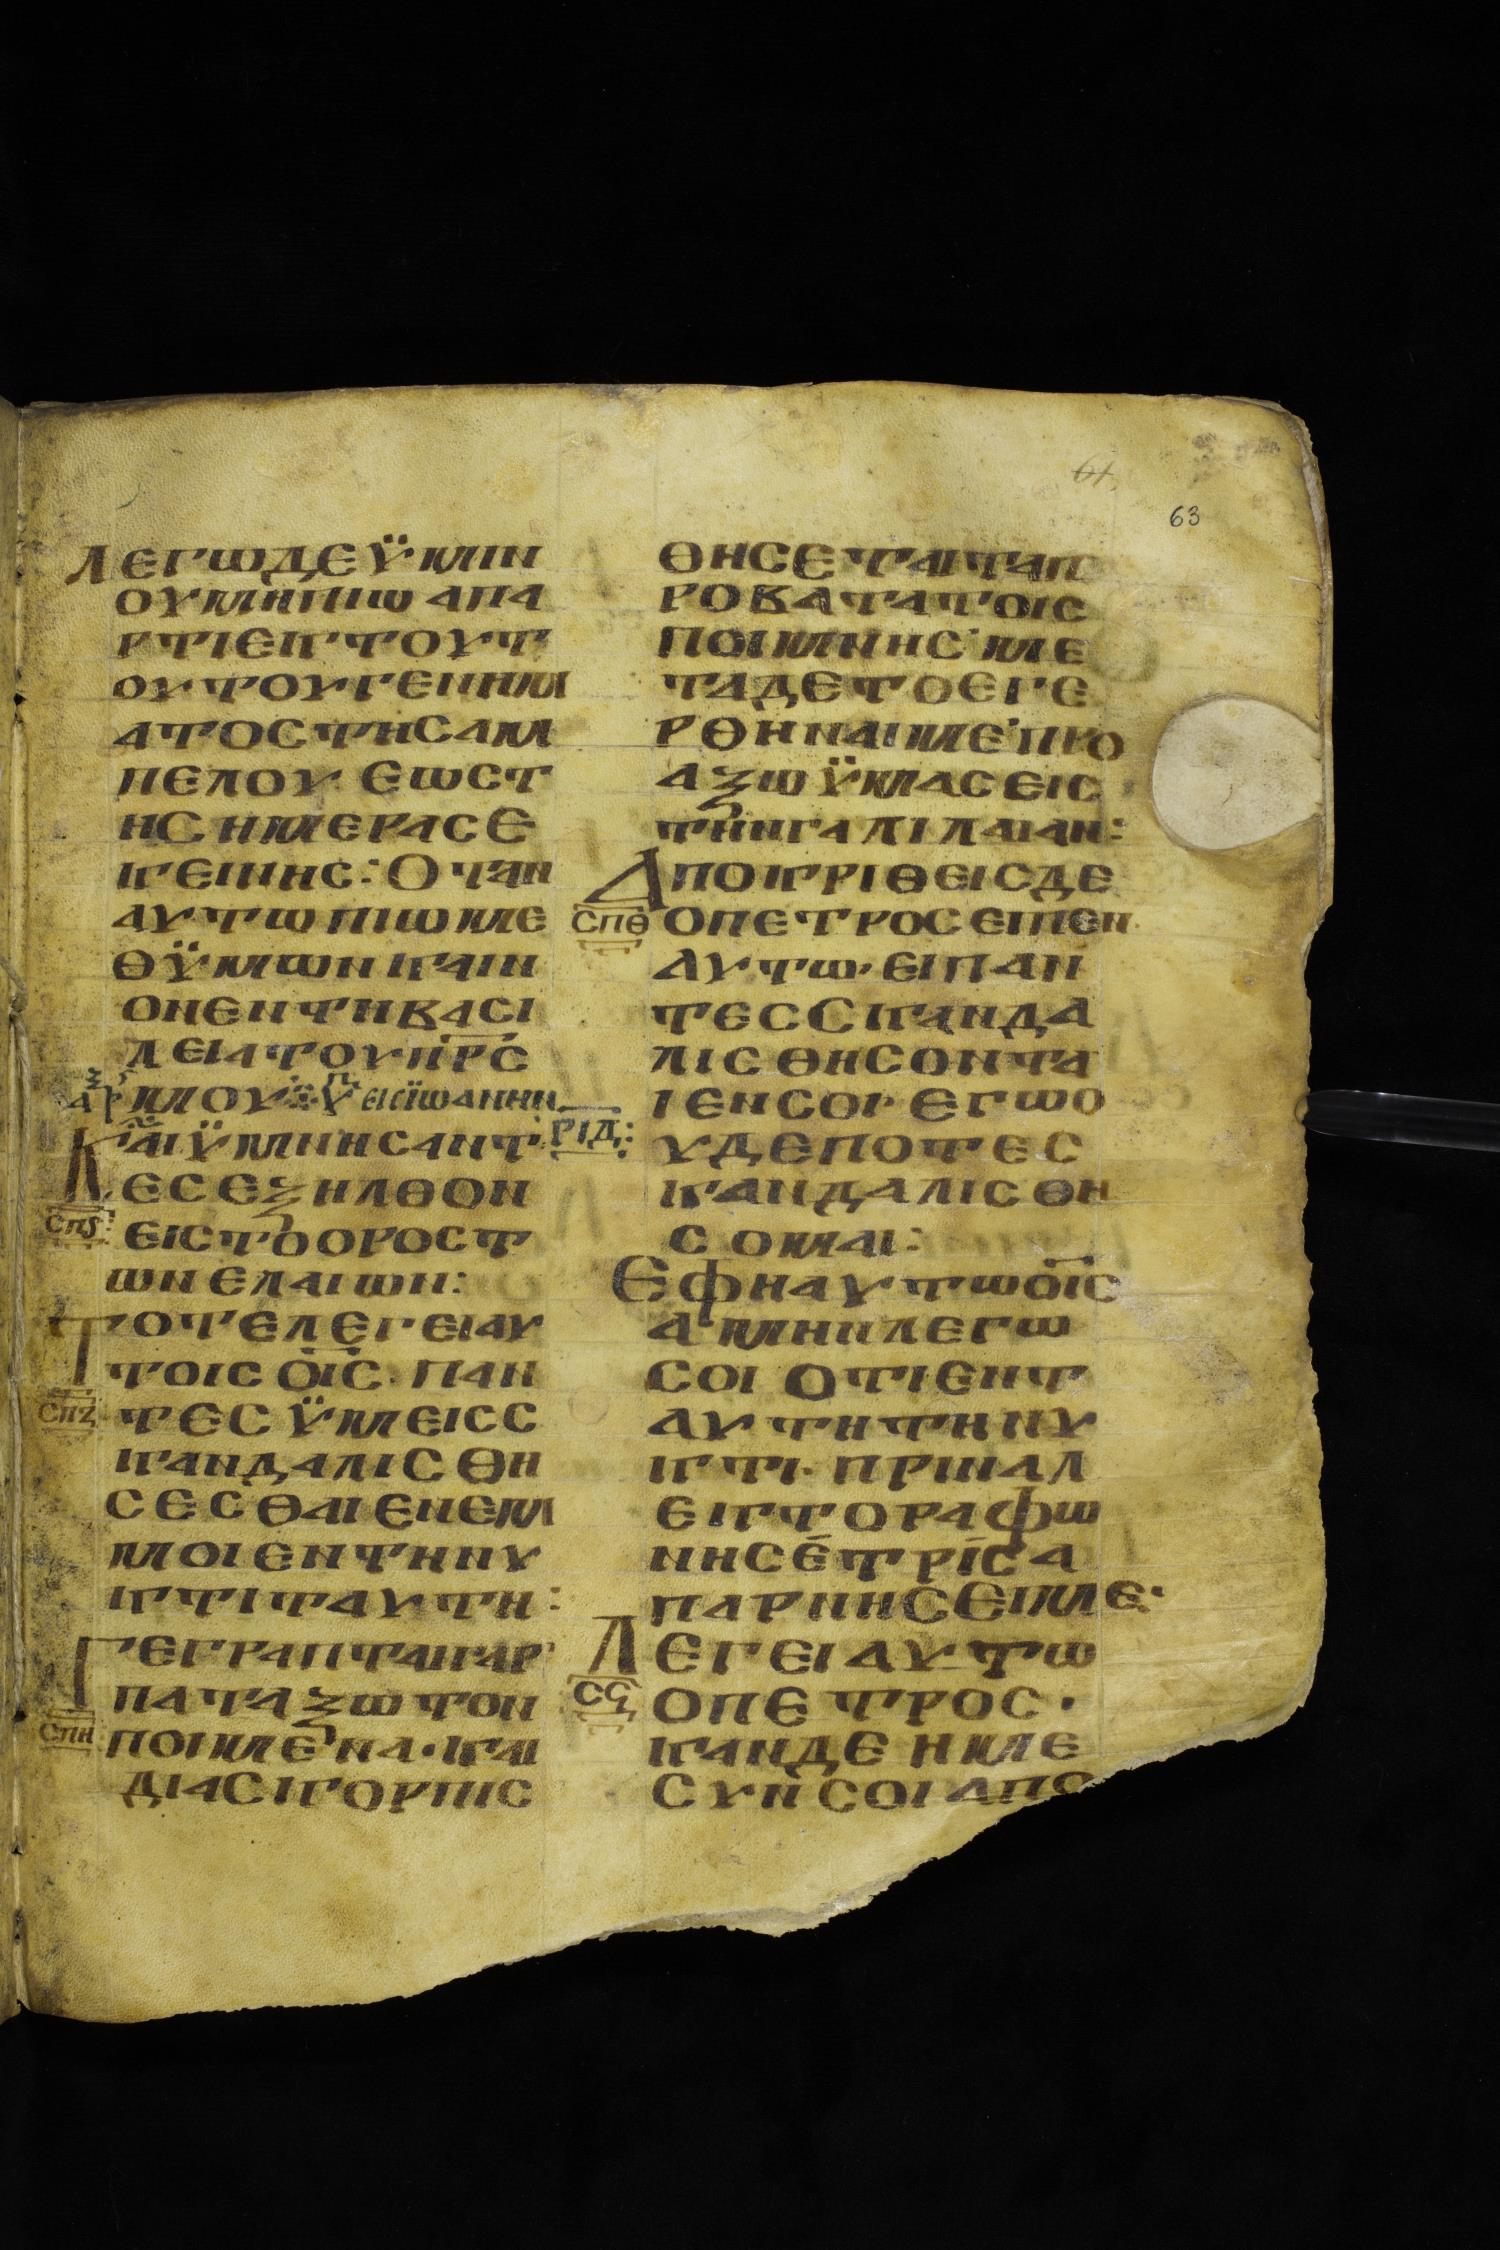 61
63
ΛΕΓΩΔΕΫΜΙΝ
ΟΥΜΗΠΙΩΑΠΑ
ΡΤΙΕΚΤΟΥΤ
ΟΥΤΟΥΓΕΝΗΜ
ΑΤΟΣΤΗΣΑΜ
ΠΕΛΟΥ ΕΩΣΤ
ΗΣΗΜΕΡΑΣΕ
ΚΕΙΝΗΣ: ΟΤΑΝ
ΑΥΤΩΠΙΩΜΕ
ΘΫΜΩΝΚΑΙΝ
ΟΝΕΝΤΗΒΑΣΙ
ΛΕΙΑΤΟΥΠΡΣ
ΜΟΥ
ΕΙΣΪΩΑΝΝΗΝ
ΡΙΔ:
ΚΑΙΫΜΝΗΣΑΝΤ
ΕΣΕΞΗΛΘΟΝ
ΣΠϚ:
ΕΙΣΤΟΟΡΟΣΤ
ΩΝΕΛΑΙΩΝ:
ΤΟΤΕΛΕΓΕΙΑΥ
ΤΟΙΣΟΙΣ· ΠΑΝ
ΣΠΖ
ΤΕΣΫΜΕΙΣΣ
ΚΑΝΔΑΛΙΣΘΗ
ΣΕΣΘΑΙΕΝΕΜ
ΜΟΙΕΝΤΗΝΥ
ΚΤΙΤΑΥΤΗ:
ΓΕΓΡΑΠΤΑΙΓΑΡ
ΠΑΤΑΞΩΤΟΝ
ΣΠΗ
ΠΟΙΜΕΝΑ·ΚΑΙ
ΔΙΑΣΚΟΡΠΙΣ
ΘΗΣΕΤΑΙΤΑΠ
ΡΟΒΑΤΑΤΟΙΣ
ΠΟΙΜΝΗΣ·ΜΕ
ΤΑΔΕΤΟΕΓΕ
ΡΘΗΝΑΙΜΕ·ΠΡΟ
ΑΞΩΫΜΑΣΕΙΣ
ΤΗΝΓΑΛΙΛΑΙΑΝ:
ΑΠΟΚΡΙΘΕΙΣΔΕ
ΣΠΘ
ΟΠΕΤΡΟΣΕΙΠΕΝ
ΑΥΤΩ·ΕΙΠΑΝ
ΤΕΣΣΚΑΝΔΑ
ΛΙΣΘΗΣΟΝΤΑ
ΙΕΝΣΟΙ· ΕΓΩΟ
ΥΔΕΠΟΤΕΣ
ΚΑΝΔΑΛΙΣΘΗ
ΣΟΜΑΙ:
ΕΦΗΑΥΤΩΟΙΣ
ΑΜΗΝΛΕΓΩ
ΣΟΙ ΟΤΙΕΝΤ
ΑΥΤΗΤΗΝΥ
ΚΤΙ· ΠΡΙΝΑΛ
ΕΚΤΟΡΑΦΩ
ΝΗΣΕΤΡΙΣΑ
ΠΑΡΝΗΣΕΙΜΕ·
ΛΕΓΕΙΑΥΤΩ
ΣϤ
ΟΠΕΤΡΟΣ·
ΚΑΝΔΕΗΜΕ
ΣΥΝΣΟΙΑΠΟ